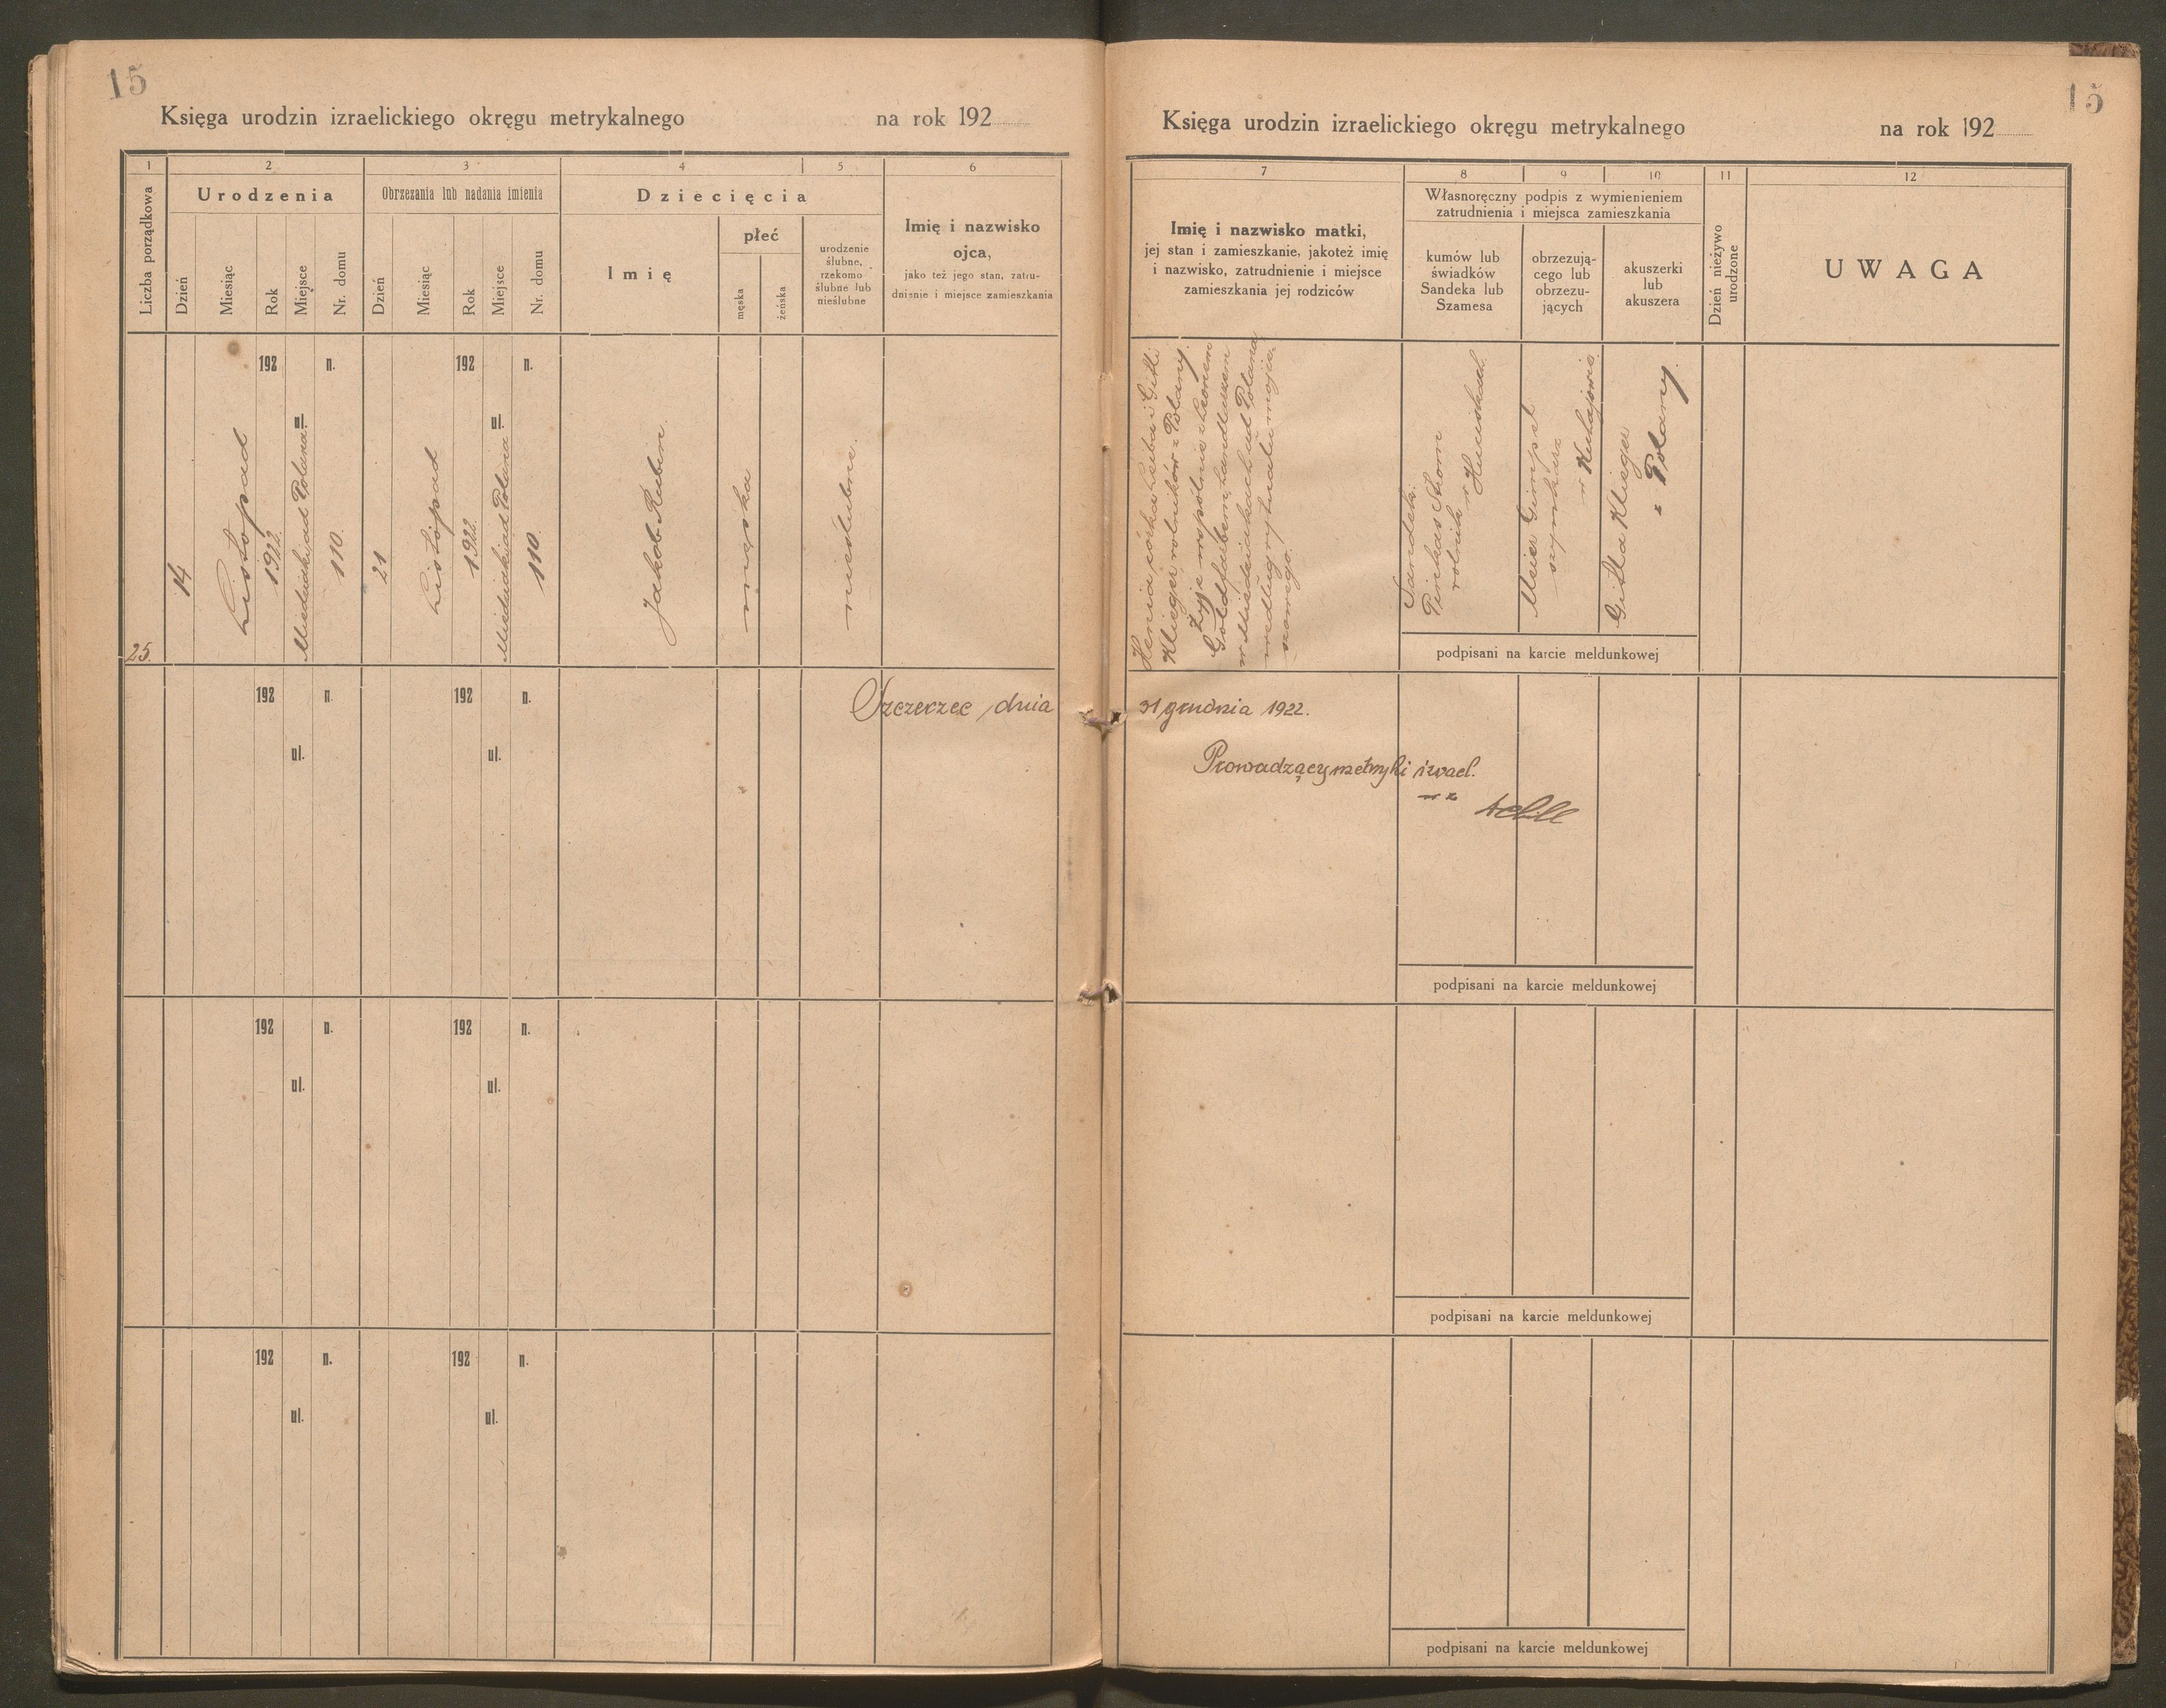 15
Księga urodzin izraelickiego okręgu metrykalnego na rok 192
1 2 3 4 5 6
Liczba porządkowa
Urodzenia
Dzień
Miesiąc
Rok
Miejsce
Nr. domu
Obrzezania lub nadania imienia
Dzień
Miesiąc
Rok
Miejsce
Nr. domu
Dziecięcia
Imię
płeć
męska
żeńska
urodzenie
ślubne,
rzekomo
ślubne lub
nieślubne
Imię i nazwisko
ojca,
jako też jego stan, zatru-
dnienie i miejsce zamieszkania
25.
14
Listopad
192
1922.
ul.
n.
110.
21
Listopad
192
1922.
ul.
n.
110
Jakob Rubin.
męska
nieślubne.
192 n. 192 n.
ul. ul.
Szczerzec, dnia
192 n. 192 n.
ul. ul.
192 n. 192 n.
ul. ul.
15
Księga urodzin izraelickiego okręgu metrykalnego na rok 192
7 8 9 10 11 12
Imię i nazwisko matki,
jej stan i zamieszkanie, jakoteż imię
i nazwisko, zatrudnienie i miejsce
zamieszkania jej rodziców
Własnoręczny podpis z wymienieniem
zatrudnienia i miejsca zamieszkania
kumów lub
świadków
Sandeka lub
Szamesa
obrzezują-
cego lub
obrzezu-
jących
akuszerki
lub
akuszera
Dzień nieżywo
urodzone
UWAGA
Henia córka Leiba i Gitli
Klieger, rolników z Polany.
Żyje wspólnie z Leonem
Goldfarbem, handlarzem
w Miedziakach ad Polana
według rytuału mojże-
szowego.
Sandek:
Pinkas Strom
rolnik w
Meier Gimpel
szynkarz
w
Gitla Klieger
z Polany.
podpisani na karcie meldunkowej
31 grudnia 1922.
Prowadzący metryki izrael.
wz
podpisani na karcie meldunkowej
podpisani na karcie meldunkowej
podpisani na karcie meldunkowej